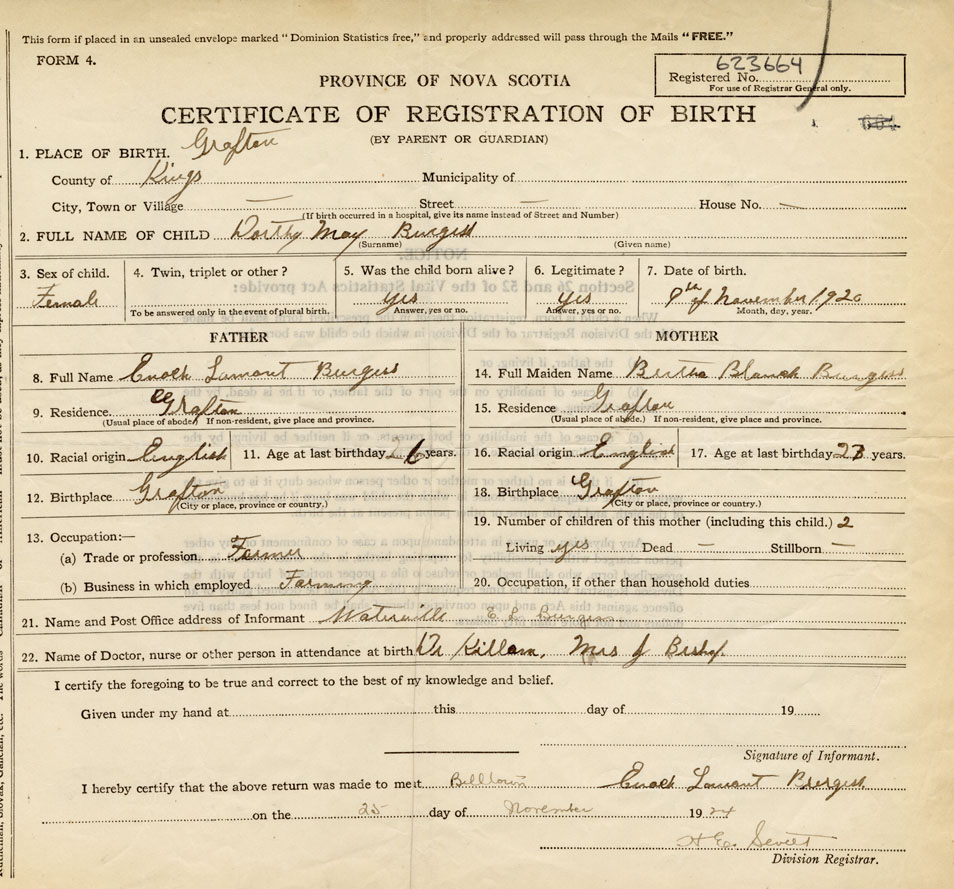 This form if placed in an unsealed envelope marked "Dominion Statistics free," and properly addressed will pass through the Mails "FREE."
FORM 4.
623664
Registered No.
For use of Registrar General only.
PROVINCE OF NOVA SCOTIA
CERTIFICATE OF REGISTRATION OF BIRTH
(BY PARENT OR GUARDIAN)
1. PLACE OF BIRTH. Grafton
County of Kings Municipality of
City, Town or Village — Street — House No. —
(If birth occurred in a hospital, give its name instead of Street and Number)
2. FULL NAME OF CHILD Dorthy May Burgess
(Surname) (Given name)
3. Sex of child. 4. Twin, triplet or other? 5. Was the child born alive? 6. Legitimate? 7. Date of birth.
Female yes yes 9th of November 192
To be answered only in the event of plural birth. Answer, yes or no. Answer, yes or no. Month, day, year.
FATHER MOTHER
8. Full Name Enoch Lamont Burgess
14. Full Maiden Name Bertha Blanch Burgess
9. Residence Grafton
(Usual place of abode) If non-resident, give place and province.
15. Residence Grafton
(Usual place of abode) If non-resident, give place and province.
10. Racial origin English 11. Age at last birthday 26 years.
16. Racial origin English 17. Age at last birthday 23 years.
12. Birthplace Grafton
(City or place, province or country.)
18. Birthplace Grafton
(City or place, province or country.)
13. Occupation:—
(a) Trade or profession Farmer
(b) Business in which employed Farming
19. Number of children of this mother (including this child.) 2
Living yes Dead — Stillborn —
20. Occupation, if other than household duties
21. Name and Post Office address of Informant Waterville E L Burgess
22. Name of Doctor, nurse or other person in attendance at birth Dr Killam, Mrs J Bishop
I certify the foregoing to be true and correct to the best of my knowledge and belief.
Given under my hand at this day of 19
Signature of Informant.
I hereby certify that the above return was made to me at Billtown Enoch Lamont Burgess
on the 25 day of November 1924
Division Registrar.